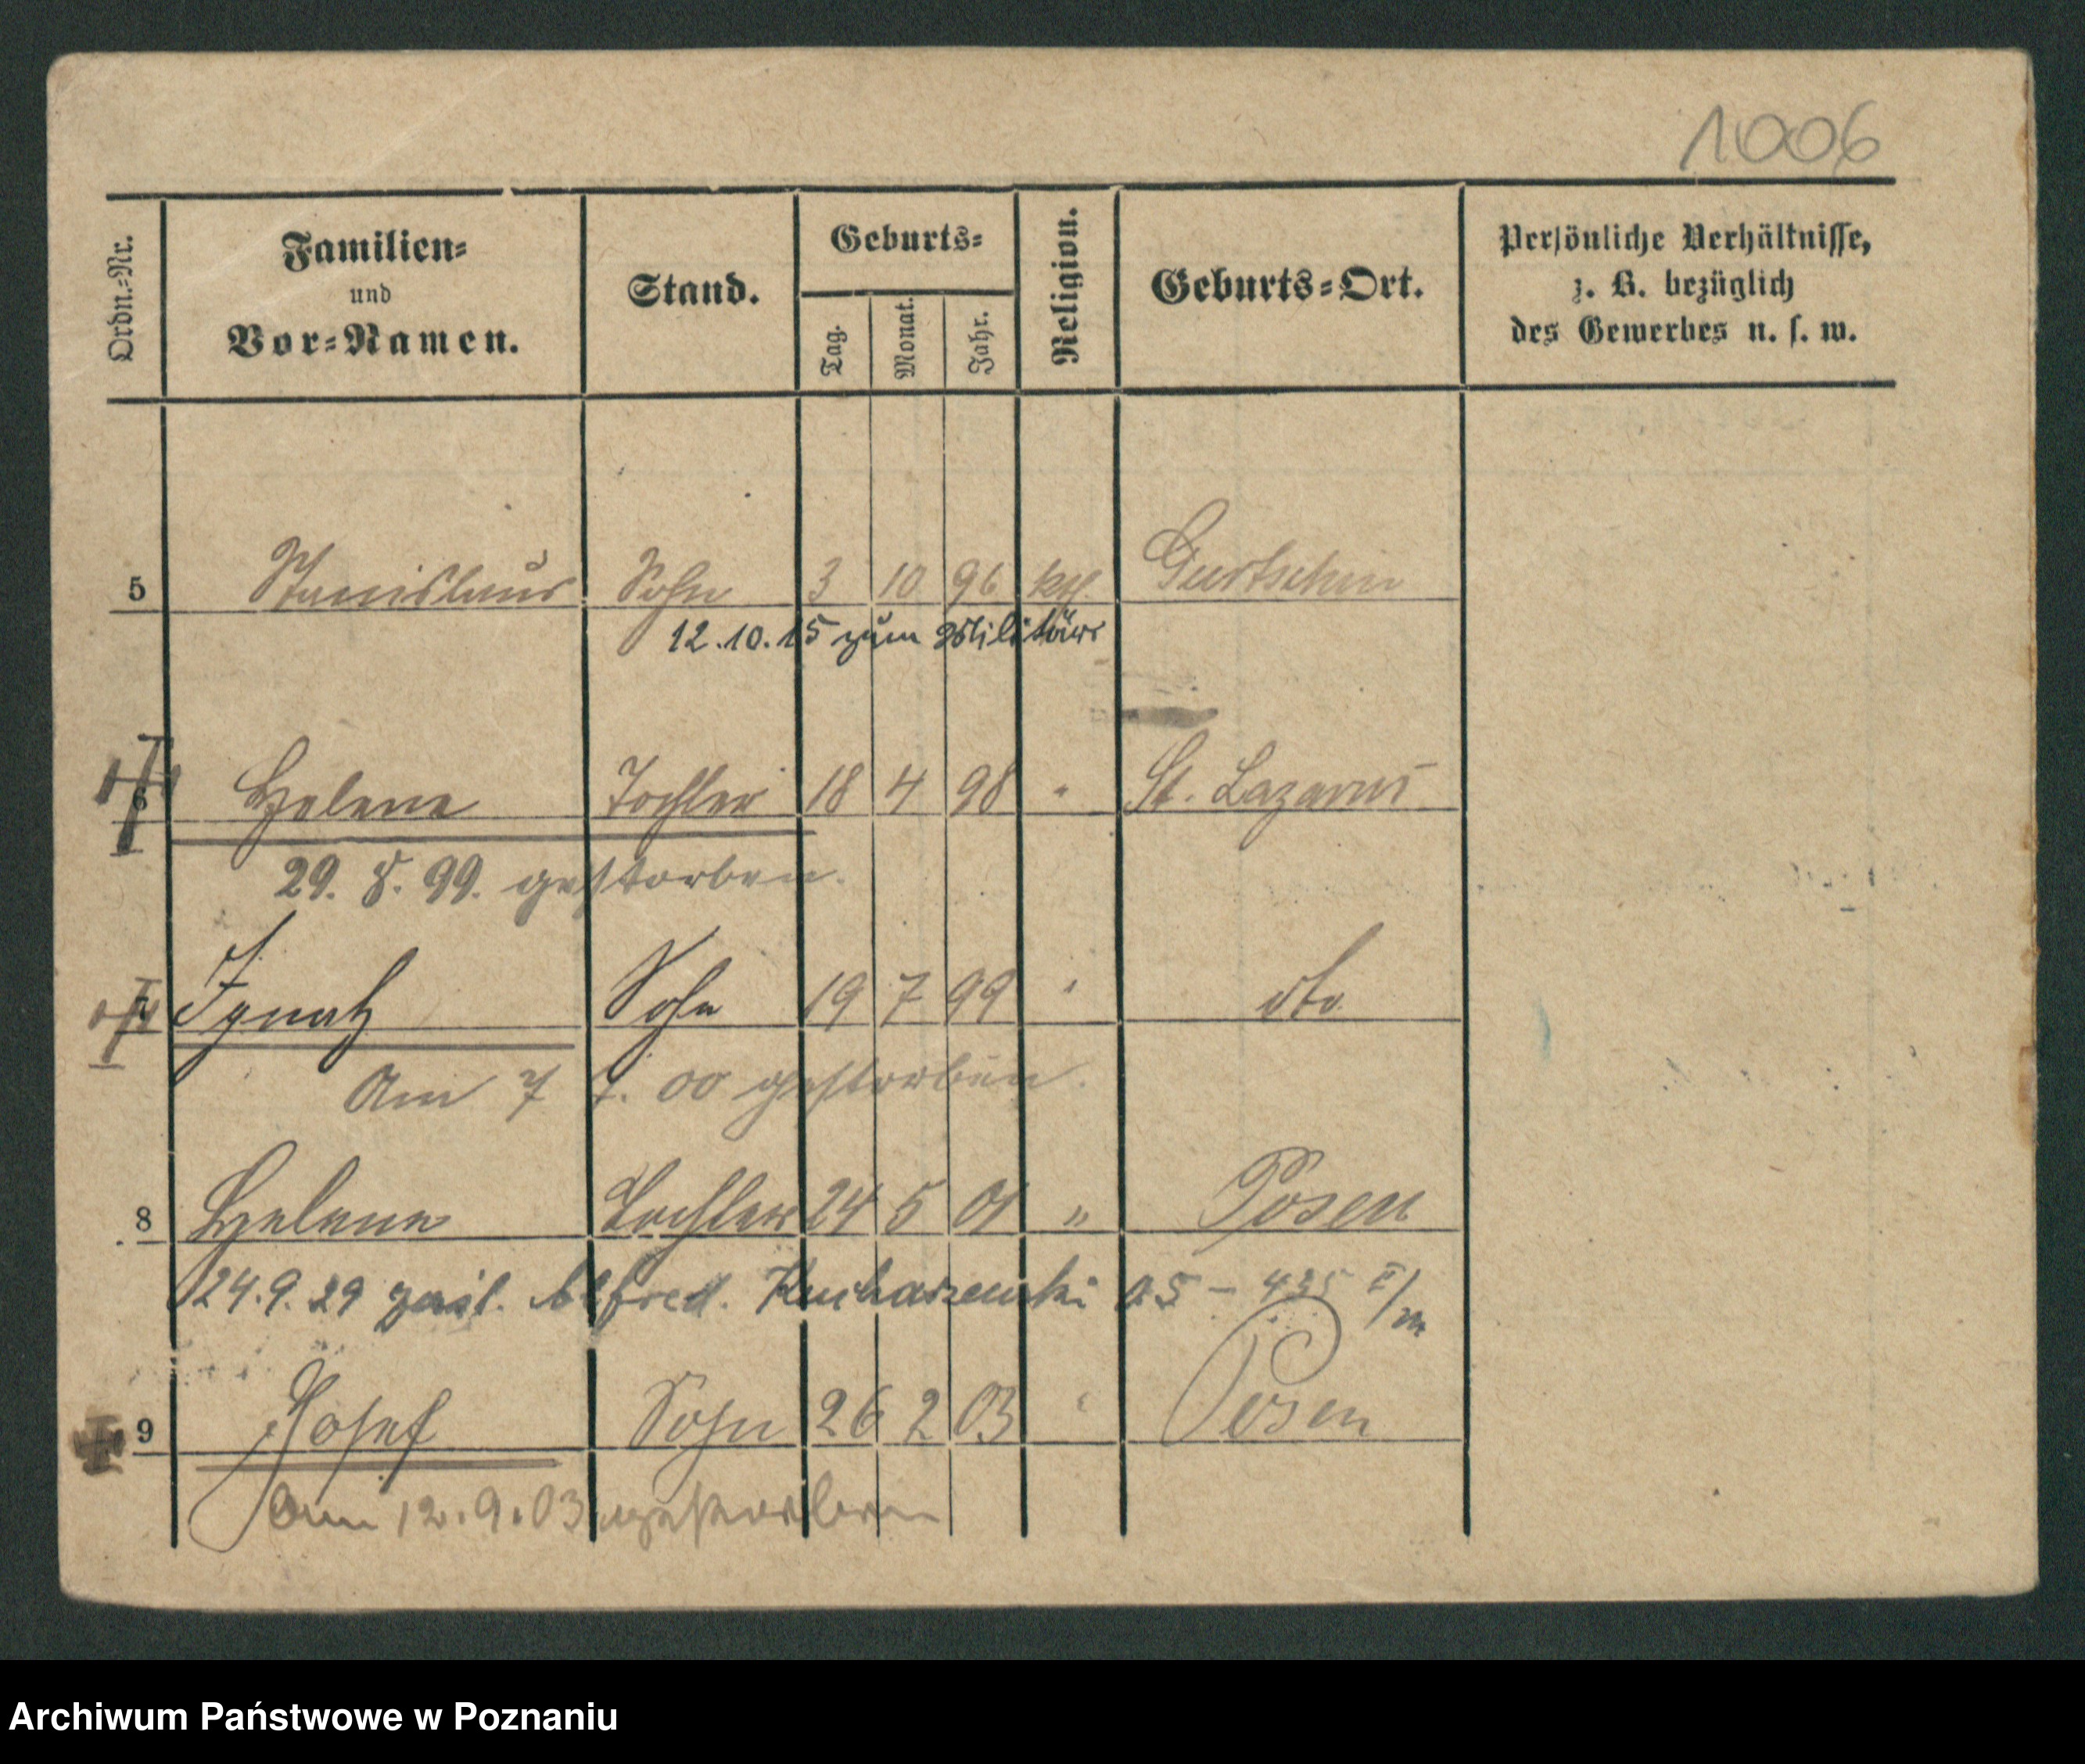 1006
Ordn.-Nr.
Familien-
und
Vor-Namen.
Stand.
Geburts-
Tag.
Monat.
Jahr.
Religion.
Geburts-Ort.
Persönliche Verhältnisse,
z. B. bezüglich
des Gewerbes u. s. w.
5 Stanislaus Sohn 3 10 96 kth. Gurtschin
12.10.15 zum Militär
6 Helene Tochter 18 4 98 " St. Lazarus
29. 8. 99. gestorben.
7 Ignatz Sohn 19 7 99 " dto
Am 7 7. 00 gestorben.
8 Helene Tochter 24 5 01 " Posen
24.9.29 zaśl. Alfred. Kucharzewski 05 - 435 II/m
9 Josef Sohn 26 2 03 " Posen
Am 12.9.03 gestorben
Archiwum Państwowe w Poznaniu